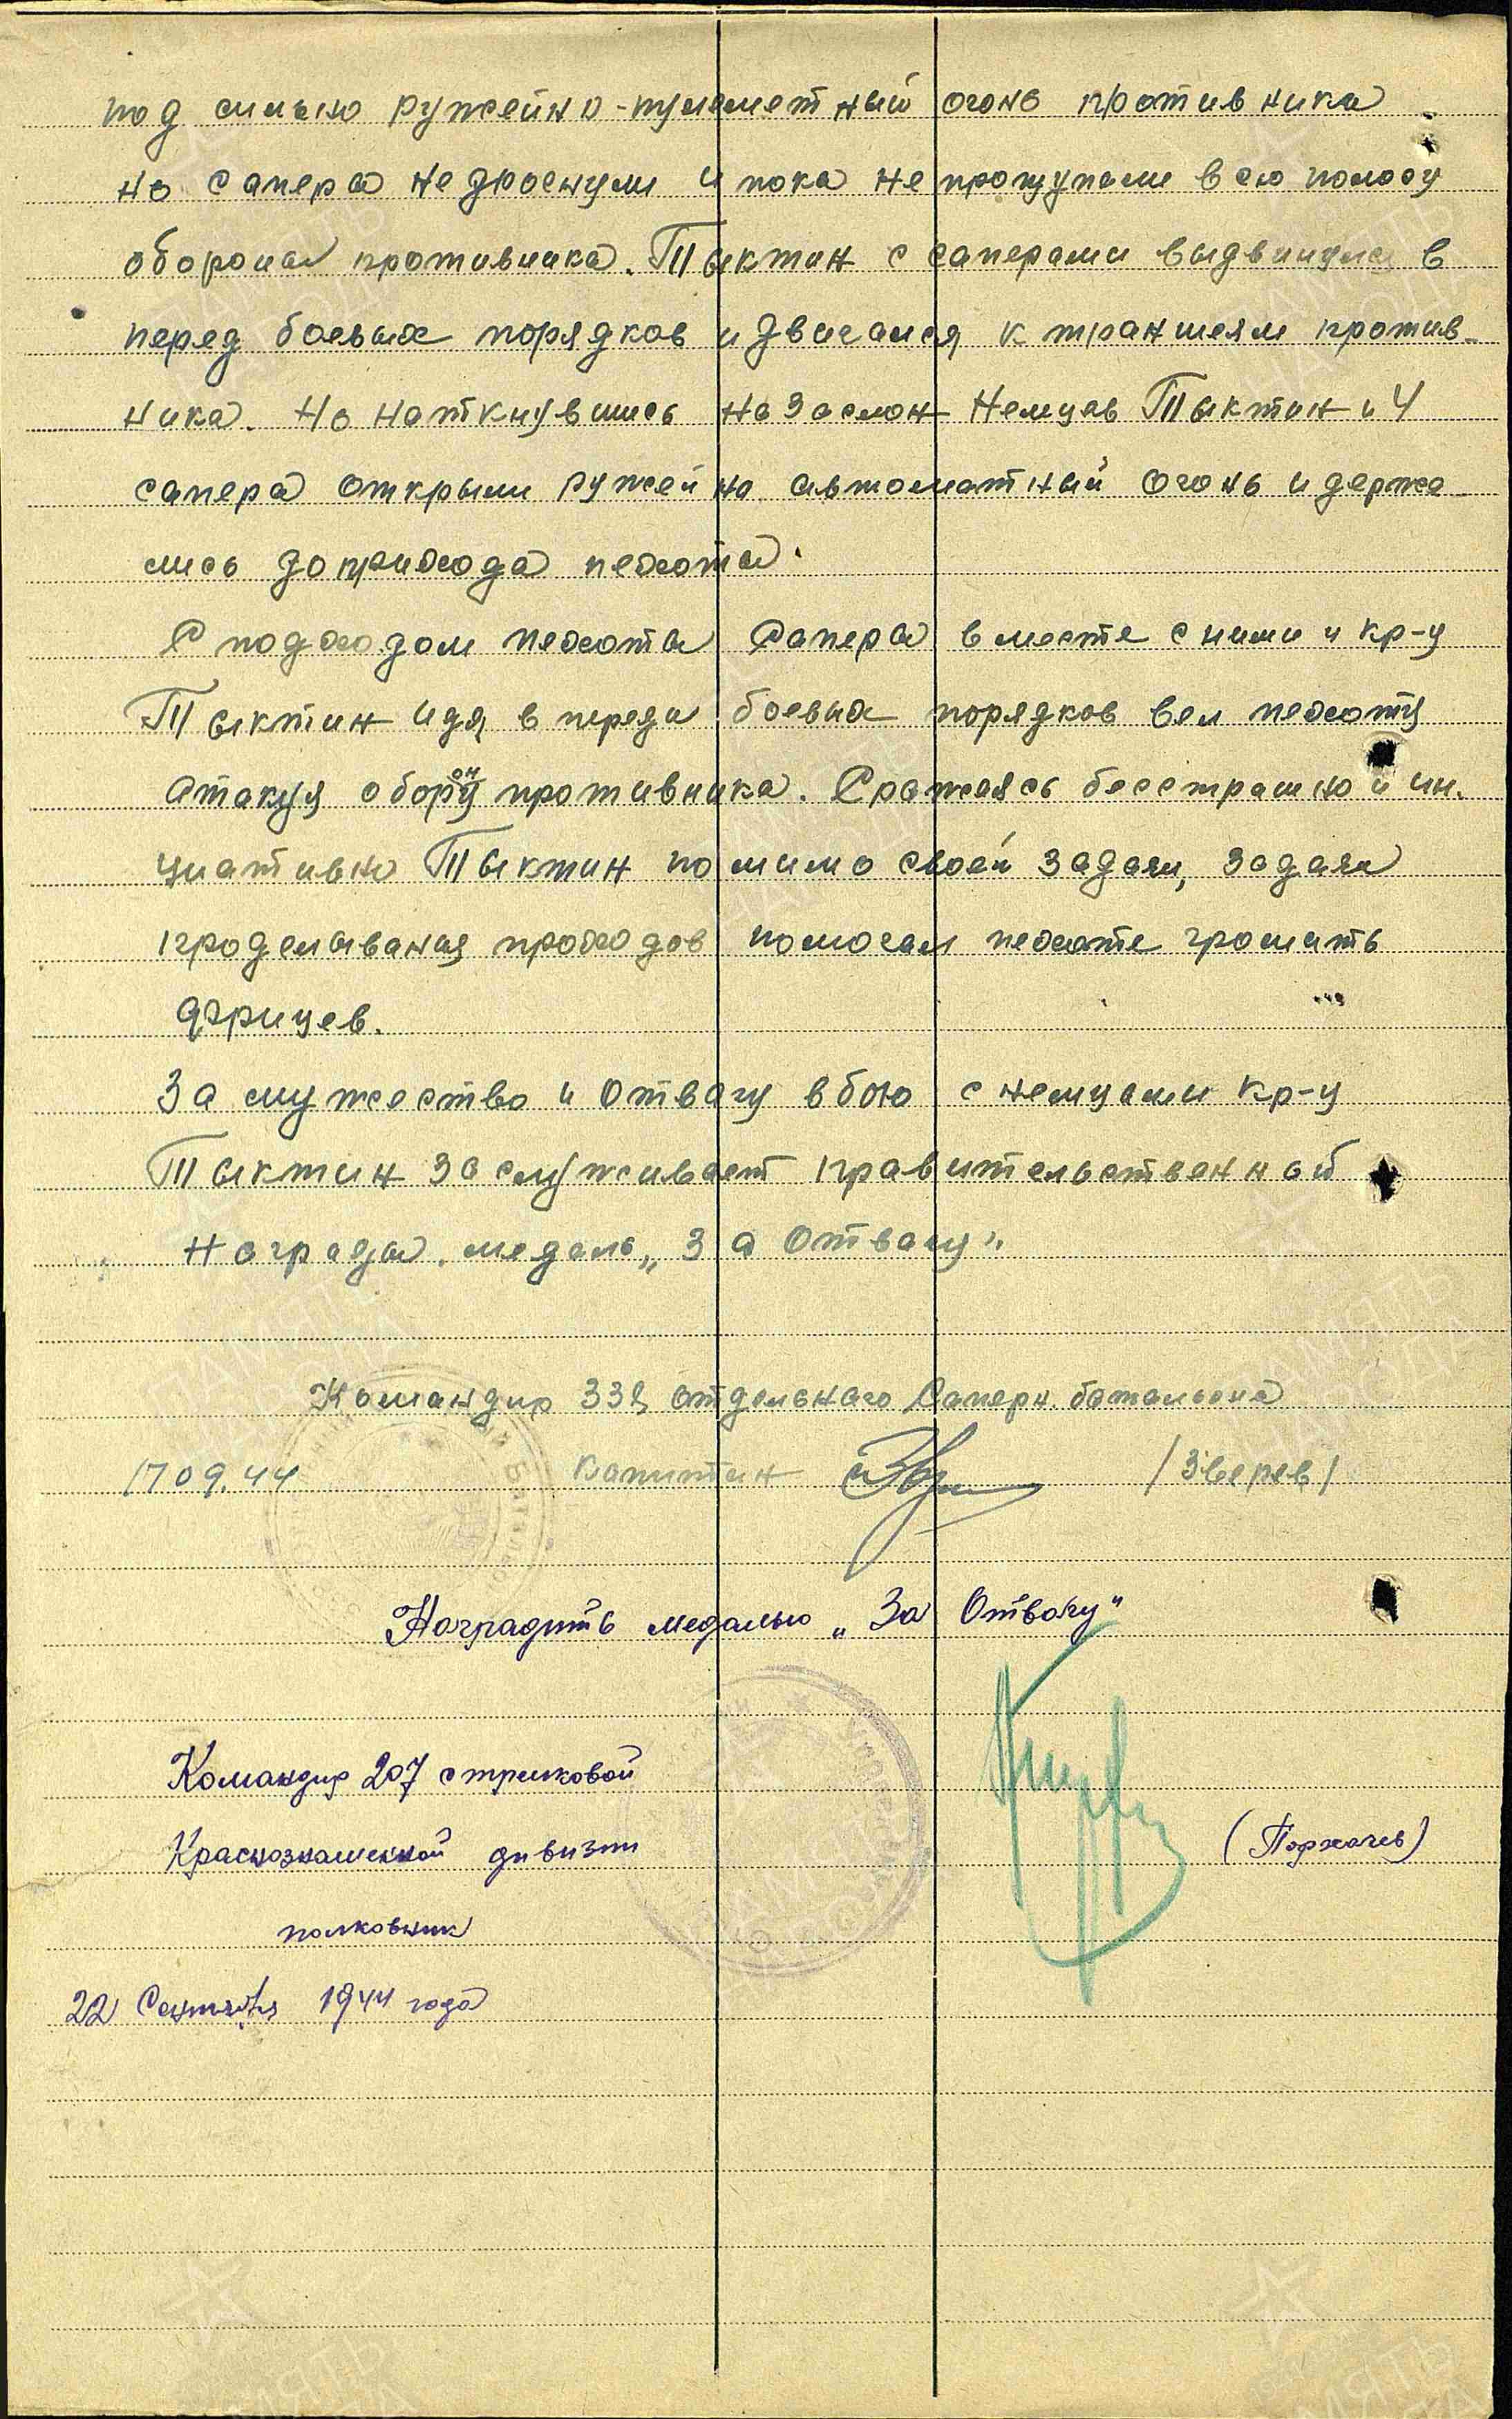 под сильно ружейно-пулеметный огонь противника
но сапера не дроснули и пока не прощупали всю полосу
обороны противника. Тыктин с саперами выдвинулся в
перед боевых порядков и двигался к траншеям против-
ника. Но наткнувшись на заслон немцев Тыктин и 4
сапера открыли ружейно автоматный огонь и держа-
лись до прихода пехоты.
С подходом пехоты саперы вместе с ними и кр-ц
Тыктин идя в переди боевых порядков вел пехоту
атакуя оборону противника. Сражаясь бесстрашно и ин-
циативно Тыктин помимо своей задачи, задачи
проделывания проходов помогал пехоте громить
фрицев.
За мужество и отвагу в бою с немцами кр-ц
Тыктин заслуживает правительственной
награды медаль „За Отвагу"
Командир 338 отдельного саперн. батальона
17 09.44 капитан /Зверев/
Наградить медалью „За Отвагу"
Командир 207 стрелковой
Краснознаменной дивизии
(Порхачев)
полковник
22 Сентября 1944 года
ПАМЯТЬ
НАРОДА